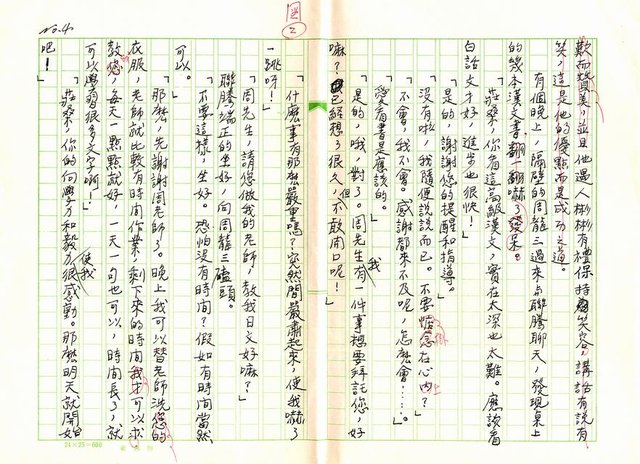 歉而贊美，並且他逼人彬彬有禮保持笑容，講話有說有
笑，這是他的優點而是成功之道。
有個晚上，隔壁的周龍三過來与聯騰聊天，發現桌上
的幾本漢文書。翻一翻嚇了一跳。
「莊桑，你看這高級漢文，實在太深也太難。應該看
白話文才好，進步也很快！」
「是的，謝謝您的提醒和指導。」
「沒有啦，我隨便說說而已。不要惦念在心內？」
「不會，我不會。感謝都來不及呢，怎麼會……。」
「愛看書是應該的。」
「是的，哦，對了。周先生，我有一件事想要拜託您，好
嘛？已經想了很久，但不敢開口呢！」
「什麼事有那麼嚴重嗎？突然間嚴肅起來，使我嚇了
一跳呀！」
「周先生，請您做我的老師，教我日文好嘛？」
聯騰端正的坐好，向周龍三磕頭。
「不要這樣，坐好。恐怕沒有時間？假如有時間當然
可以。」
「那麼，先謝謝周老師了。晚上我可以替老師洗您的
衣服，老師就比較有時間作業，剩下來的時間我才可以求
教您，每天一點點就好，一天一句也可以，時間長了，就
可以學習很多文字啊！」
「莊桑，你的向學力和毅力使我很感動。那麼明天就開始
吧！」
No.4
24×25=600